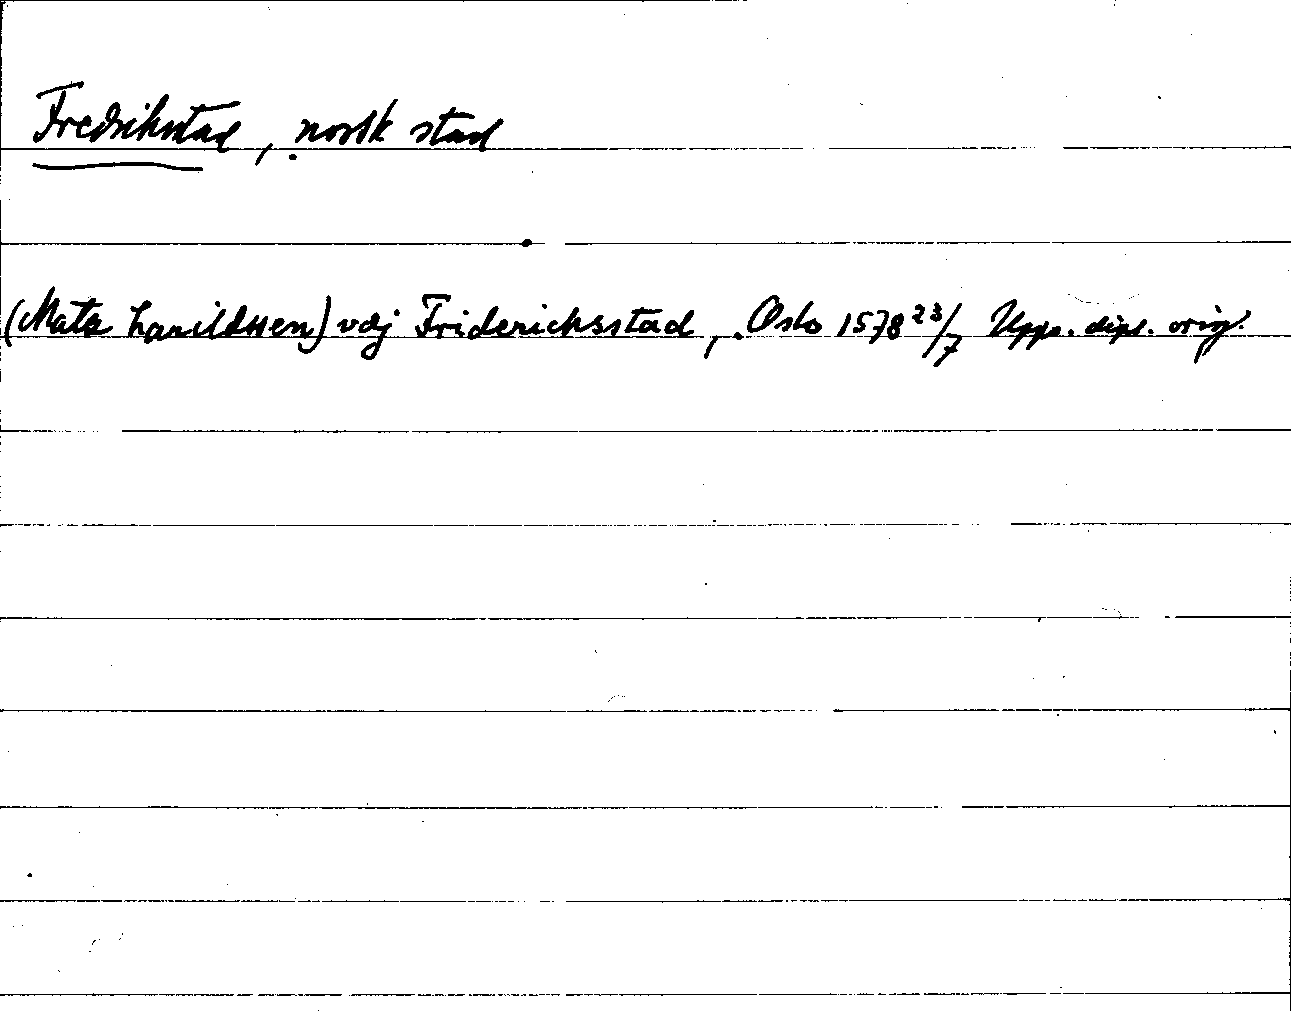 Fredrikstad, norsk stad
(Mats harildssen) vdj Friderichsstad, Oslo 1578 23/7 Upps. dipl. orig.